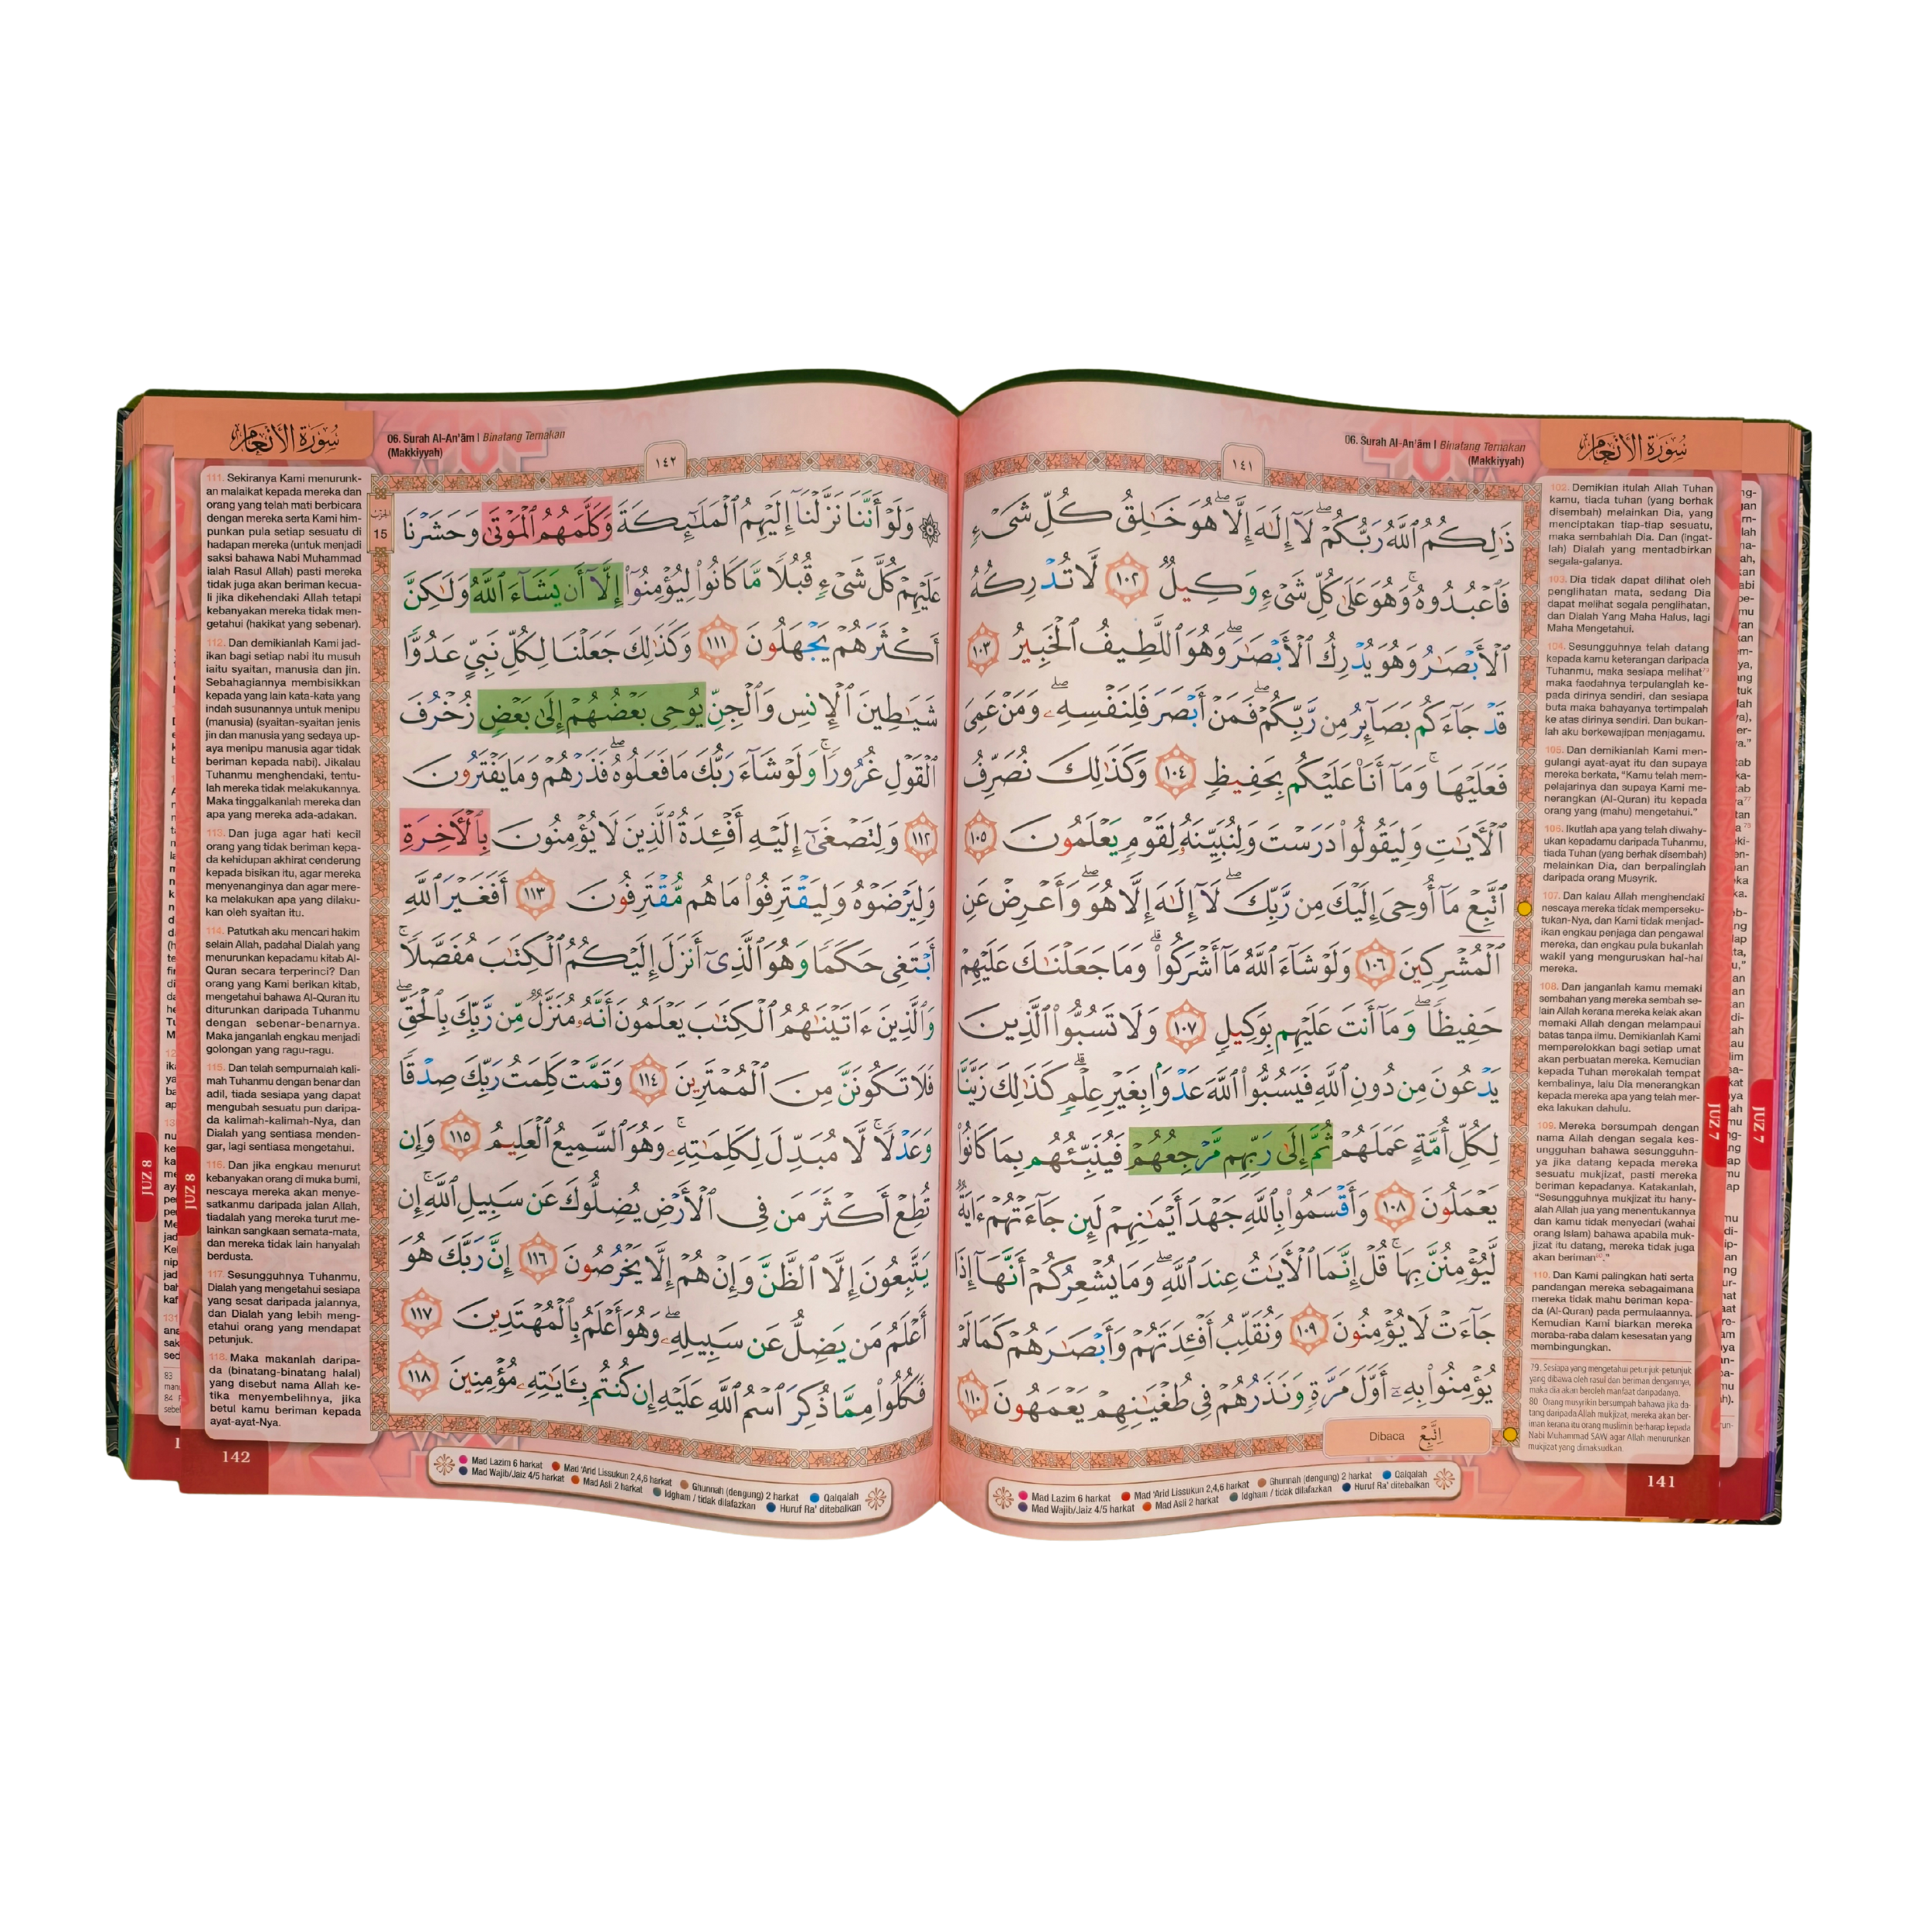 06. Surah Al-An'ām | Binatang Ternakan
(Makkiyyah)
سُورَةُ الأَنْعَام
١٤١
ذَٰلِكُمُ ٱللَّهُ رَبُّكُمْۖ لَآ إِلَٰهَ إِلَّا هُوَۖ خَٰلِقُ كُلِّ شَىْءٍ
فَٱعْبُدُوهُۚ وَهُوَ عَلَىٰ كُلِّ شَىْءٍ وَكِيلٌ ١٠٢ لَّا تُدْرِكُهُ
ٱلْأَبْصَٰرُ وَهُوَ يُدْرِكُ ٱلْأَبْصَٰرَۖ وَهُوَ ٱللَّطِيفُ ٱلْخَبِيرُ ١٠٣
قَدْ جَآءَكُم بَصَآئِرُ مِن رَّبِّكُمْۖ فَمَنْ أَبْصَرَ فَلِنَفْسِهِۦۖ وَمَنْ عَمِىَ
فَعَلَيْهَاۚ وَمَآ أَنَا۠ عَلَيْكُم بِحَفِيظٍ ١٠٤ وَكَذَٰلِكَ نُصَرِّفُ
ٱلْءَايَٰتِ وَلِيَقُولُوا۟ دَرَسْتَ وَلِنُبَيِّنَهُۥ لِقَوْمٍ يَعْلَمُونَ ١٠٥
ٱتَّبِعْ مَآ أُوحِىَ إِلَيْكَ مِن رَّبِّكَۖ لَآ إِلَٰهَ إِلَّا هُوَۖ وَأَعْرِضْ عَنِ
ٱلْمُشْرِكِينَ ١٠٦ وَلَوْ شَآءَ ٱللَّهُ مَآ أَشْرَكُوا۟ۗ وَمَا جَعَلْنَٰكَ عَلَيْهِمْ
حَفِيظًاۖ وَمَآ أَنتَ عَلَيْهِم بِوَكِيلٍ ١٠٧ وَلَا تَسُبُّوا۟ ٱلَّذِينَ
يَدْعُونَ مِن دُونِ ٱللَّهِ فَيَسُبُّوا۟ ٱللَّهَ عَدْوًۢا بِغَيْرِ عِلْمٍۗ كَذَٰلِكَ زَيَّنَّا
لِكُلِّ أُمَّةٍ عَمَلَهُمْ ثُمَّ إِلَىٰ رَبِّهِم مَّرْجِعُهُمْ فَيُنَبِّئُهُم بِمَا كَانُوا۟
يَعْمَلُونَ ١٠٨ وَأَقْسَمُوا۟ بِٱللَّهِ جَهْدَ أَيْمَٰنِهِمْ لَئِن جَآءَتْهُمْ ءَايَةٌ
لَّيُؤْمِنُنَّ بِهَاۚ قُلْ إِنَّمَا ٱلْءَايَٰتُ عِندَ ٱللَّهِۖ وَمَا يُشْعِرُكُمْ أَنَّهَآ إِذَا
جَآءَتْ لَا يُؤْمِنُونَ ١٠٩ وَنُقَلِّبُ أَفْـِٔدَتَهُمْ وَأَبْصَٰرَهُمْ كَمَا لَمْ
يُؤْمِنُوا۟ بِهِۦٓ أَوَّلَ مَرَّةٍ وَنَذَرُهُمْ فِى طُغْيَٰنِهِمْ يَعْمَهُونَ ١١٠
Dibaca اِتَّبِعْ
102. Demikian itulah Allah Tuhan
kamu, tiada tuhan (yang berhak
disembah) melainkan Dia, yang
menciptakan tiap-tiap sesuatu,
maka sembahlah Dia. Dan (ingat-
lah) Dialah yang mentadbirkan
segala-galanya.
103. Dia tidak dapat dilihat oleh
penglihatan mata, sedang Dia
dapat melihat segala penglihatan,
dan Dialah Yang Maha Halus, lagi
Maha Mengetahui.
104. Sesungguhnya telah datang
kepada kamu keterangan daripada
Tuhanmu, maka sesiapa melihat⁷⁹
maka faedahnya terpulanglah ke-
pada dirinya sendiri, dan sesiapa
buta maka bahayanya tertimpalah
ke atas dirinya sendiri. Dan bukan-
lah aku berkewajipan menjagamu.
105. Dan demikianlah Kami men-
gulangi ayat-ayat itu dan supaya
mereka berkata, "Kamu telah mem-
pelajarinya dan supaya Kami me-
nerangkan (Al-Quran) itu kepada
orang yang (mahu) mengetahui."
106. Ikutlah apa yang telah diwahy-
ukan kepadamu daripada Tuhanmu,
tiada Tuhan (yang berhak disembah)
melainkan Dia, dan berpalinglah
daripada orang Musyrik.
107. Dan kalau Allah menghendaki
nescaya mereka tidak memperseku-
tukan-Nya, dan Kami tidak menjad-
ikan engkau penjaga dan pengawal
mereka, dan engkau pula bukanlah
wakil yang menguruskan hal-hal
mereka.
108. Dan janganlah kamu memaki
sembahan yang mereka sembah se-
lain Allah kerana mereka kelak akan
memaki Allah dengan melampaui
batas tanpa ilmu. Demikianlah Kami
memperelokkan bagi setiap umat
akan perbuatan mereka. Kemudian
kepada Tuhan merekalah tempat
kembalinya, lalu Dia menerangkan
kepada mereka apa yang telah mer-
eka lakukan dahulu.
109. Mereka bersumpah dengan
nama Allah dengan segala kes-
ungguhan bahawa sesungguhn-
ya jika datang kepada mereka
sesuatu mukjizat, pasti mereka
beriman kepadanya. Katakanlah,
"Sesungguhnya mukjizat itu hany-
alah Allah jua yang menentukannya
dan kamu tidak menyedari (wahai
orang Islam) bahawa apabila muk-
jizat itu datang, mereka tidak juga
akan beriman⁸⁰."
110. Dan Kami palingkan hati serta
pandangan mereka sebagaimana
mereka tidak mahu beriman kepa-
da (Al-Quran) pada permulaannya.
Kemudian Kami biarkan mereka
meraba-raba dalam kesesatan yang
membingungkan.
79. Sesiapa yang mengetahui petunjuk-petunjuk
yang dibawa oleh rasul dan beriman dengannya,
maka dia akan beroleh manfaat daripadanya.
80 Orang musyrikin bersumpah bahawa jika da-
tang daripada Allah mukjizat, mereka akan ber-
iman kerana itu orang muslimin berharap kepada
Nabi Muhammad SAW agar Allah menurunkan
mukjizat yang dimaksudkan.
JUZ 7
JUZ 7
Mad Lazim 6 harkat Mad 'Arid Lissukun 2,4,6 harkat Ghunnah (dengung) 2 harkat Qalqalah
Mad Wajib/Jaiz 4/5 harkat Mad Asli 2 harkat Idgham / tidak dilafazkan Huruf Ra' ditebalkan
141
سُورَةُ الأَنْعَام
06. Surah Al-An'ām | Binatang Ternakan
(Makkiyyah)
١٤٢
الحزب
15
۞ وَلَوْ أَنَّنَا نَزَّلْنَآ إِلَيْهِمُ ٱلْمَلَٰٓئِكَةَ وَكَلَّمَهُمُ ٱلْمَوْتَىٰ وَحَشَرْنَا
عَلَيْهِمْ كُلَّ شَىْءٍ قُبُلًا مَّا كَانُوا۟ لِيُؤْمِنُوٓا۟ إِلَّآ أَن يَشَآءَ ٱللَّهُ وَلَٰكِنَّ
أَكْثَرَهُمْ يَجْهَلُونَ ١١١ وَكَذَٰلِكَ جَعَلْنَا لِكُلِّ نَبِىٍّ عَدُوًّا
شَيَٰطِينَ ٱلْإِنسِ وَٱلْجِنِّ يُوحِى بَعْضُهُمْ إِلَىٰ بَعْضٍ زُخْرُفَ
ٱلْقَوْلِ غُرُورًاۚ وَلَوْ شَآءَ رَبُّكَ مَا فَعَلُوهُۖ فَذَرْهُمْ وَمَا يَفْتَرُونَ
١١٢ وَلِتَصْغَىٰٓ إِلَيْهِ أَفْـِٔدَةُ ٱلَّذِينَ لَا يُؤْمِنُونَ بِٱلْءَاخِرَةِ
وَلِيَرْضَوْهُ وَلِيَقْتَرِفُوا۟ مَا هُم مُّقْتَرِفُونَ ١١٣ أَفَغَيْرَ ٱللَّهِ
أَبْتَغِى حَكَمًا وَهُوَ ٱلَّذِىٓ أَنزَلَ إِلَيْكُمُ ٱلْكِتَٰبَ مُفَصَّلًاۚ
وَٱلَّذِينَ ءَاتَيْنَٰهُمُ ٱلْكِتَٰبَ يَعْلَمُونَ أَنَّهُۥ مُنَزَّلٌ مِّن رَّبِّكَ بِٱلْحَقِّۖ
فَلَا تَكُونَنَّ مِنَ ٱلْمُمْتَرِينَ ١١٤ وَتَمَّتْ كَلِمَتُ رَبِّكَ صِدْقًا
وَعَدْلًاۚ لَّا مُبَدِّلَ لِكَلِمَٰتِهِۦۚ وَهُوَ ٱلسَّمِيعُ ٱلْعَلِيمُ ١١٥ وَإِن
تُطِعْ أَكْثَرَ مَن فِى ٱلْأَرْضِ يُضِلُّوكَ عَن سَبِيلِ ٱللَّهِۚ إِن
يَتَّبِعُونَ إِلَّا ٱلظَّنَّ وَإِنْ هُمْ إِلَّا يَخْرُصُونَ ١١٦ إِنَّ رَبَّكَ هُوَ
أَعْلَمُ مَن يَضِلُّ عَن سَبِيلِهِۦۖ وَهُوَ أَعْلَمُ بِٱلْمُهْتَدِينَ ١١٧
فَكُلُوا۟ مِمَّا ذُكِرَ ٱسْمُ ٱللَّهِ عَلَيْهِ إِن كُنتُم بِـَٔايَٰتِهِۦ مُؤْمِنِينَ ١١٨
111. Sekiranya Kami menurunk-
an malaikat kepada mereka dan
orang yang telah mati berbicara
dengan mereka serta Kami him-
punkan pula setiap sesuatu di
hadapan mereka (untuk menjadi
saksi bahawa Nabi Muhammad
ialah Rasul Allah) pasti mereka
tidak juga akan beriman kecua-
li jika dikehendaki Allah tetapi
kebanyakan mereka tidak men-
getahui (hakikat yang sebenar).
112. Dan demikianlah Kami jad-
ikan bagi setiap nabi itu musuh
iaitu syaitan, manusia dan jin.
Sebahagiannya membisikkan
kepada yang lain kata-kata yang
indah susunannya untuk menipu
(manusia) (syaitan-syaitan jenis
jin dan manusia yang sedaya up-
aya menipu manusia agar tidak
beriman kepada nabi). Jikalau
Tuhanmu menghendaki, tentu-
lah mereka tidak melakukannya.
Maka tinggalkanlah mereka dan
apa yang mereka ada-adakan.
113. Dan juga agar hati kecil
orang yang tidak beriman kepa-
da kehidupan akhirat cenderung
kepada bisikan itu, agar mereka
menyenanginya dan agar mere-
ka melakukan apa yang dilaku-
kan oleh syaitan itu.
114. Patutkah aku mencari hakim
selain Allah, padahal Dialah yang
menurunkan kepadamu kitab Al-
Quran secara terperinci? Dan
orang yang Kami berikan kitab,
mengetahui bahawa Al-Quran itu
diturunkan daripada Tuhanmu
dengan sebenar-benarnya.
Maka janganlah engkau menjadi
golongan yang ragu-ragu.
115. Dan telah sempurnalah kali-
mah Tuhanmu dengan benar dan
adil, tiada sesiapa yang dapat
mengubah sesuatu pun daripa-
da kalimah-kalimah-Nya, dan
Dialah yang sentiasa menden-
gar, lagi sentiasa mengetahui.
116. Dan jika engkau menurut
kebanyakan orang di muka bumi,
nescaya mereka akan menye-
satkanmu daripada jalan Allah,
tiadalah yang mereka turut me-
lainkan sangkaan semata-mata,
dan mereka tidak lain hanyalah
berdusta.
117. Sesungguhnya Tuhanmu,
Dialah yang mengetahui sesiapa
yang sesat daripada jalannya,
dan Dialah yang lebih meng-
etahui orang yang mendapat
petunjuk.
118. Maka makanlah daripa-
da (binatang-binatang halal)
yang disebut nama Allah ke-
tika menyembelihnya, jika
betul kamu beriman kepada
ayat-ayat-Nya.
JUZ 8
JUZ 8
Mad Lazim 6 harkat Mad 'Arid Lissukun 2,4,6 harkat Ghunnah (dengung) 2 harkat Qalqalah
Mad Wajib/Jaiz 4/5 harkat Mad Asli 2 harkat Idgham / tidak dilafazkan Huruf Ra' ditebalkan
142